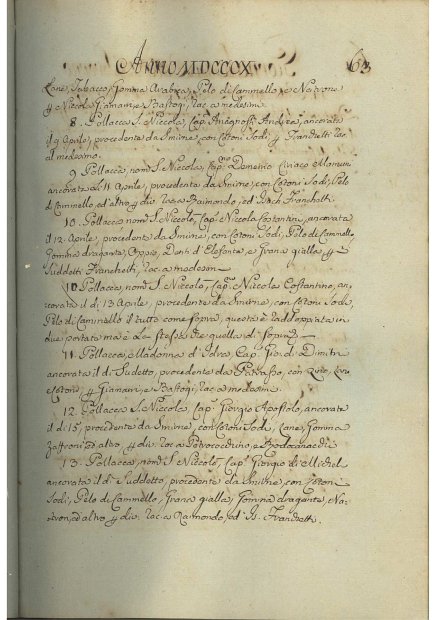 ANNO MDCCCX 63
Lane, Tabacco, Gomma Arabica, Pelo di Cammello
e Niccola Gianari, e Bastogi, rac. a medesimi
8. Pollacca S. Niccola, Cap. Andrea, ancorata
il 9 Aprile, procedente da Smirne, con Cotoni Sodi, Franchetti rac.
al medesimo.
9. Pollacca, nom. S. Niccola, Cap. Demetrio
ancorata di 11 Aprile, procedente da Smirne, con Cotoni Sodi, Pelo
di Cammello, ed altro, div. rac. a Raimondo, ed Franchetti
10. Pollacca nom. S. Niccolò, Cap. Niccola Costantini, ancorata
il 12 Aprile, procedente da Smirne, con Cotoni Sodi, Pelo di Cammello,
Gomma dragante, Oppio, Denti d'Elefante, e Grana gialla
Suddetti Franchetti, rac. a medesimi
10. Pollacca, nom. S. Niccolò, Cap. Niccola Costantino, an-
corata il di 13 Aprile, procedente da Smirne, con Cotoni Sodi,
Pelo di Cammello il tutto come sopra, questa è raddoppiata in
due portata ma è la stessa che quella di sopra
11. Pollacca Madonna d'Idra, Cap. Gio. di Dimitri
ancorata il di Suddetto, procedente da Patrasso, con
e Cotoni Gianari, e Bastogi, rac. a medesimi
12. Pollacca S. Niccola, Cap. Giorgio Apostolo, ancorata
il di 15, procedente da Smirne, con Cotoni Sodi, Lane, Gomma
Zaffroni, ed altro, div. rac. a Petrocochino, e Rodocanachi
13. Pollacca, nom. S. Niccolò, Cap. Giorgio di Michel
ancorata il di Suddetto, procedente da Smirne, con Cotoni
Sodi, Pelo di Cammello, Grana gialla, Gomma dragante,
ed altro div. rac. a Raimondo, ed Franchetti.